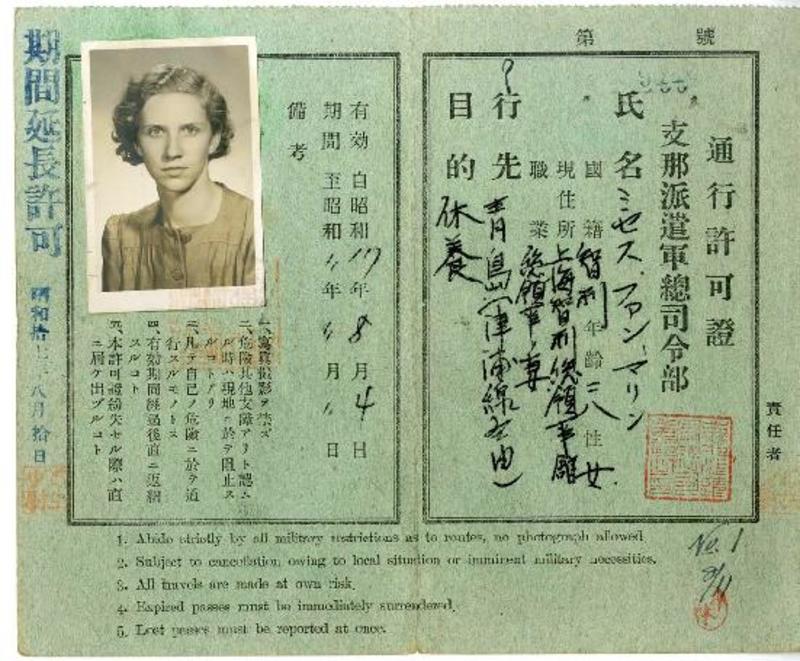 第 號
通行許可證
支那派遣軍總司令部
責任者
氏名 ミセス、ファン、マリン
國籍 智利 年齡 二八 性 女
現住所 上海智利総領事館
職業 総領事ノ妻
行先 青島(津浦線経由)
目的 休養
有効 自昭和17年8月4日
期間 至昭和 年 月 日
備考
一、寫眞撮影ヲ禁ズ
二、危險其他支障アリト認ムル時ハ現地ニ於テ阻止スルコトアリ
三、凡テ自己ノ危險ニ於テ通行スルモノトス
四、有効期間經過後直ニ返納スルコト
五、本許可證紛失セル際ハ直ニ届ケ出ヅルコト
期間延長許可
昭和拾七年八月拾日
1. Abide strictly by all military restrictions as to routes, no photograph allowed.
2. Subject to cancellation owing to local situation or imminent military necessities.
3. All travels are made at own risk.
4. Expired passes must be immediately surrendered.
5. Lost passes must be reported at once.
No. 1